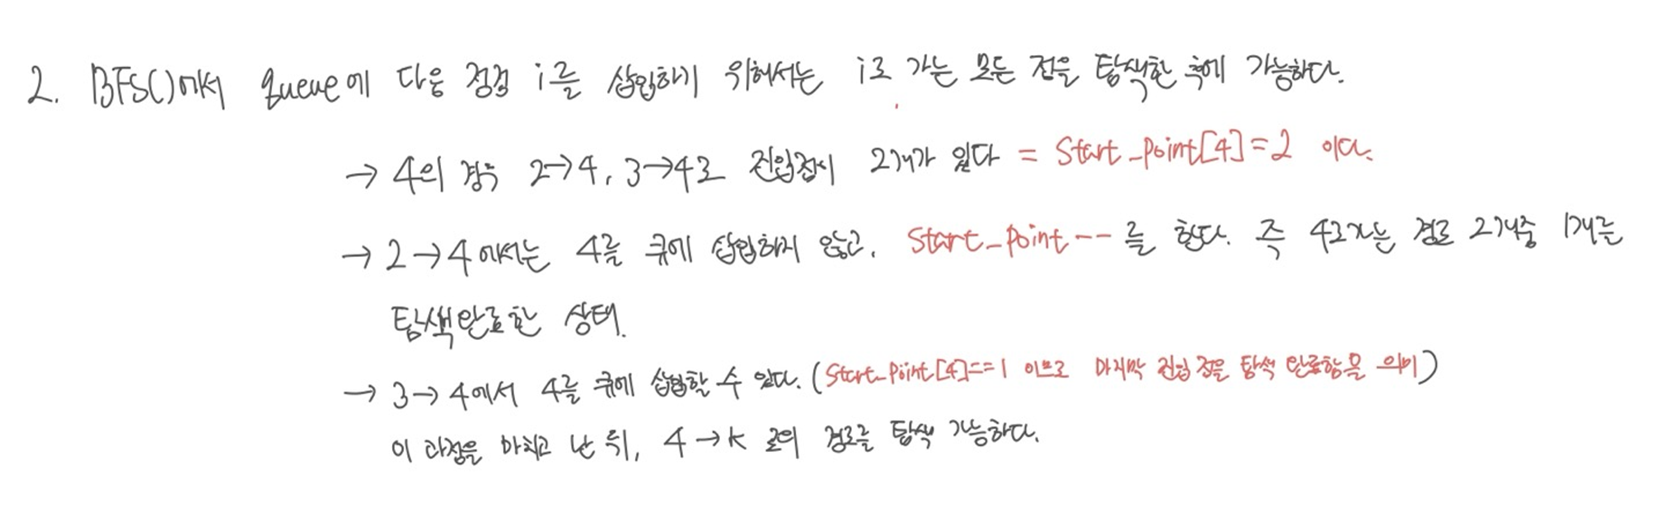 2. BFS()에서 queue에 다음 정점 i를 삽입하기 위해서는 i로 가는 모든 점을 탐색한 후에 가능하다.
→ 4의 경우 2→4, 3→4로 진입점이 2개가 있다 = Start_Point[4]=2 이다.
→ 2→4에서는 4를 큐에 삽입하지 않고, Start_Point-- 를 한다. 즉 4로가는 경로 2개중 1개를
탐색완료한 상태.
→ 3→4에서 4를 큐에 삽입할 수 있다. (Start_Point[4]==1 이므로 마지막 진입점을 탐색 완료함을 의미)
이 과정을 마치고 난 뒤, 4→k 로의 경로를 탐색 가능하다.